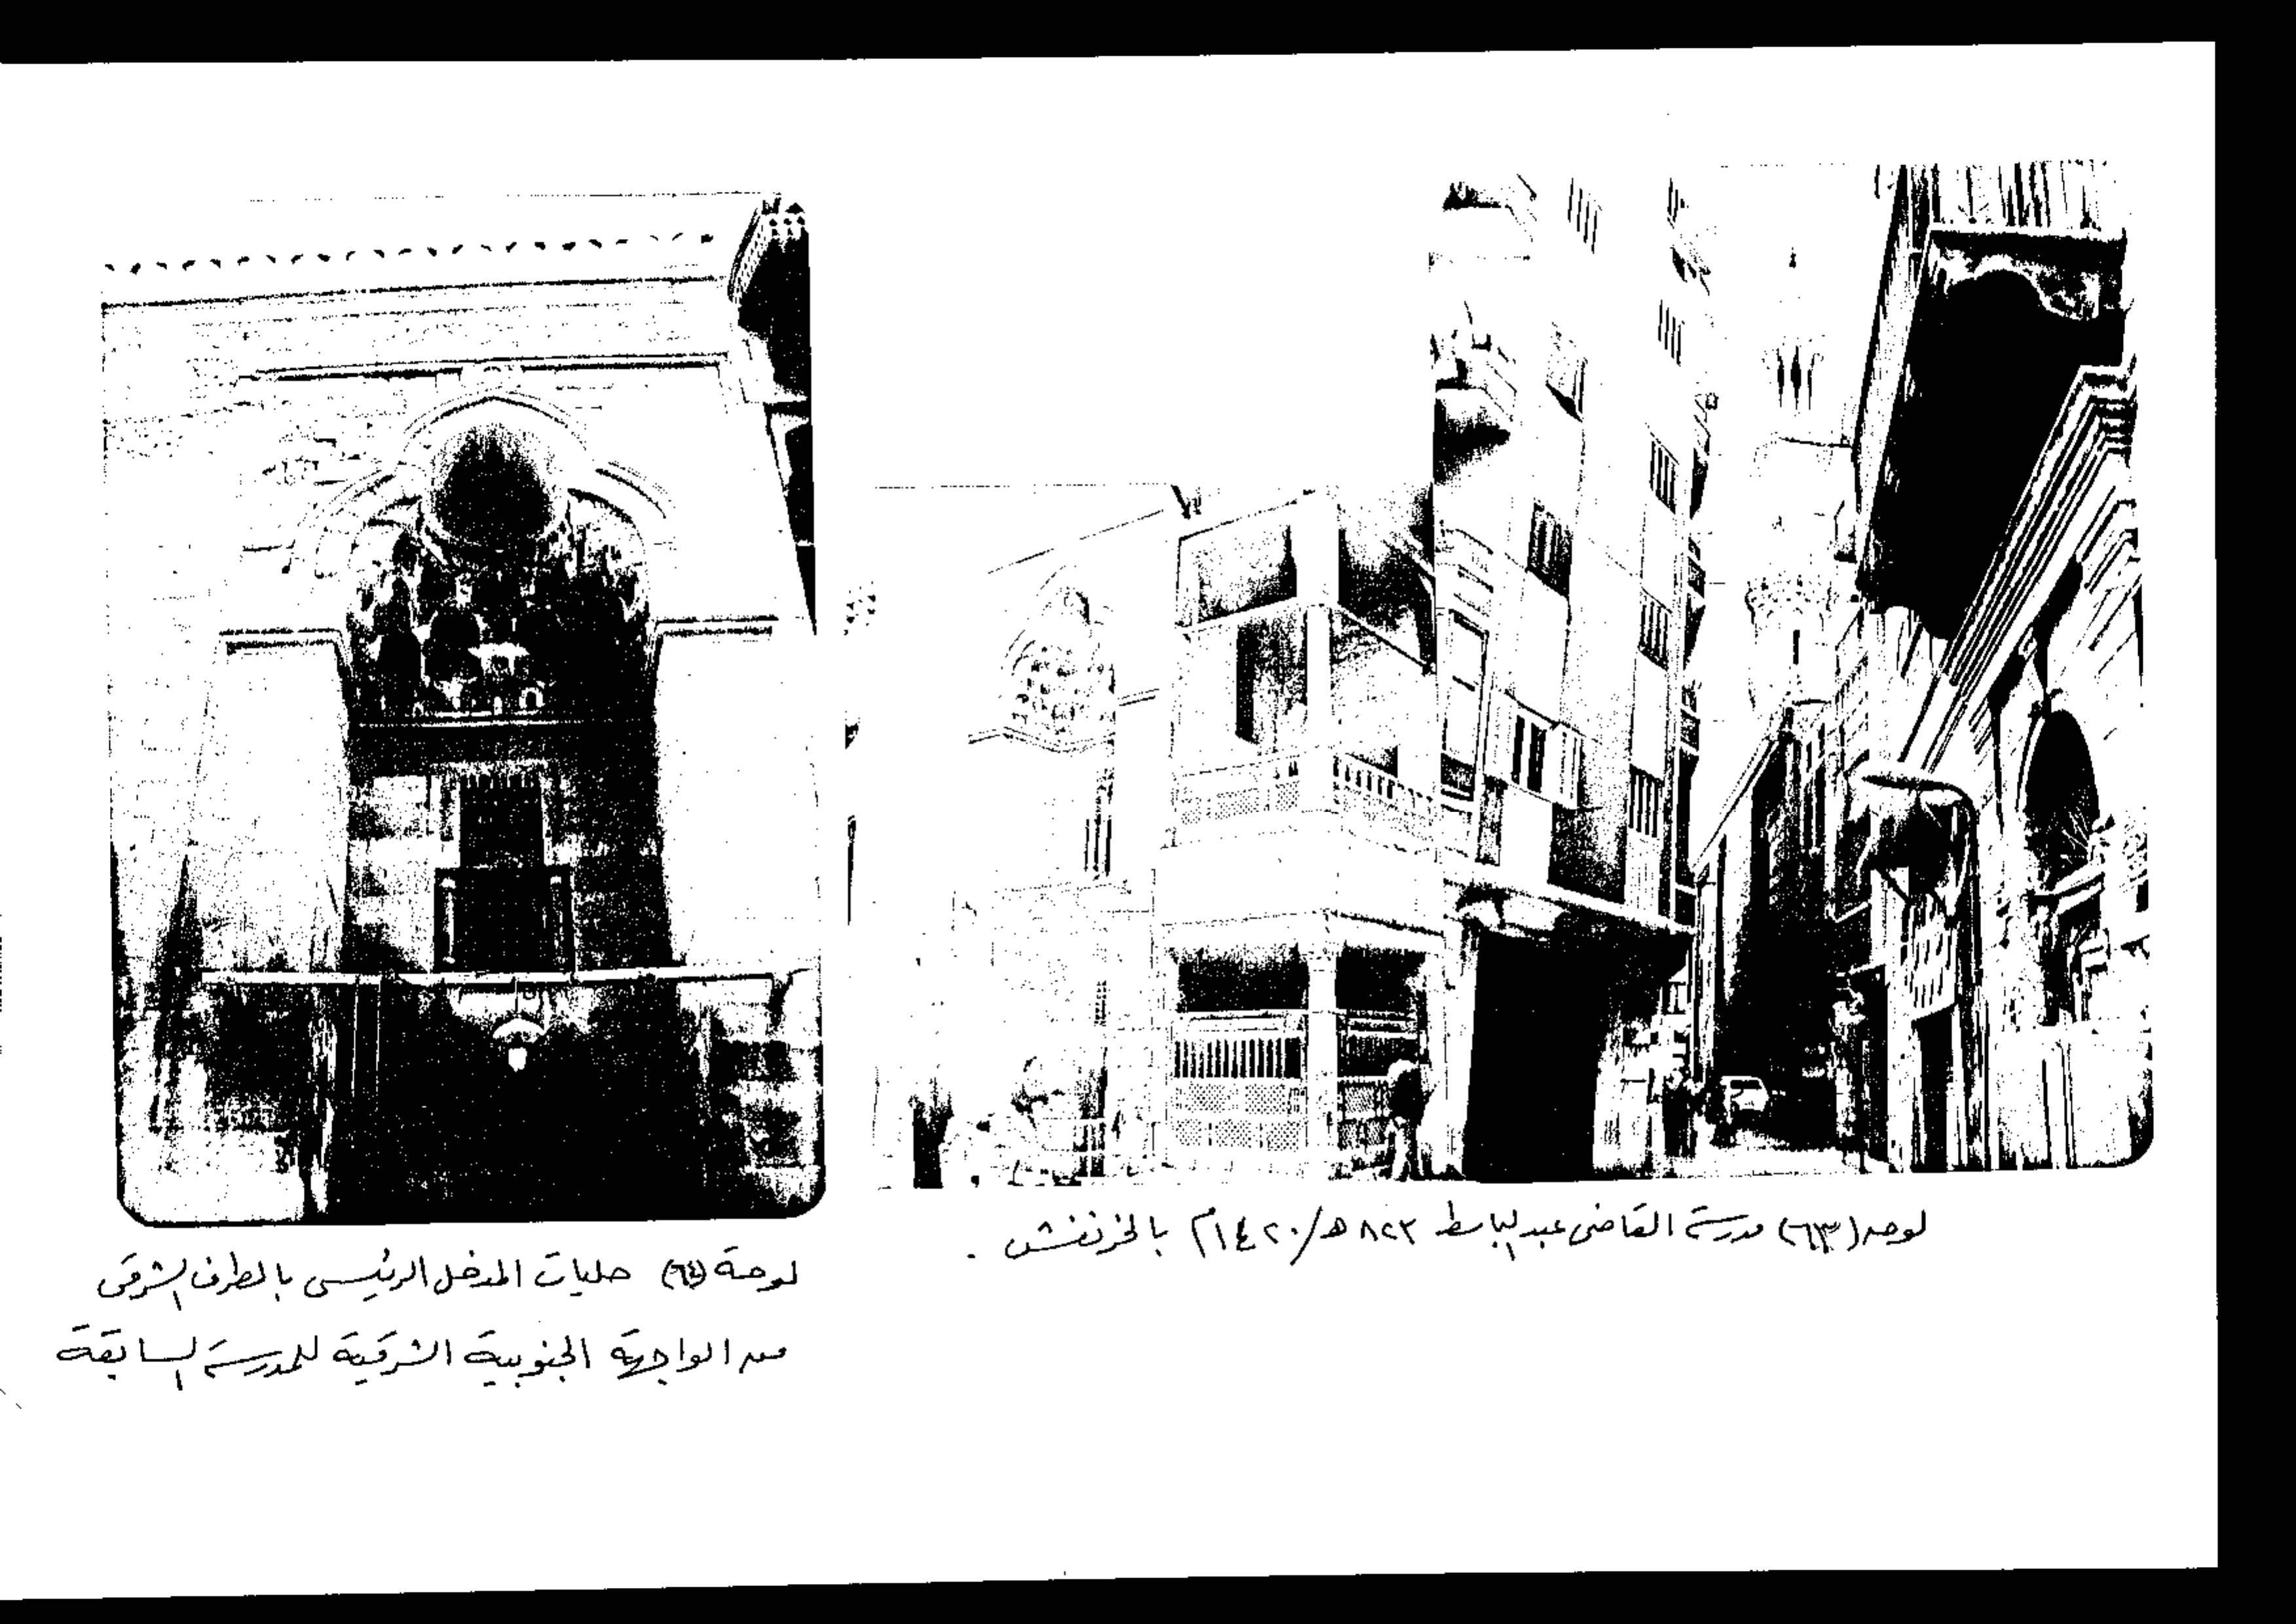 لوحه (٦٣) مدرسة القاضى عبدالباسط ٨٢٣ هـ/١٤٢٠م بالخرنفش .
لوحة (٦٤) حليات المدخل الرئيسى بالطرف الشرقى
من الواجهة الجنوبية الشرقية للمدرسة السابقة